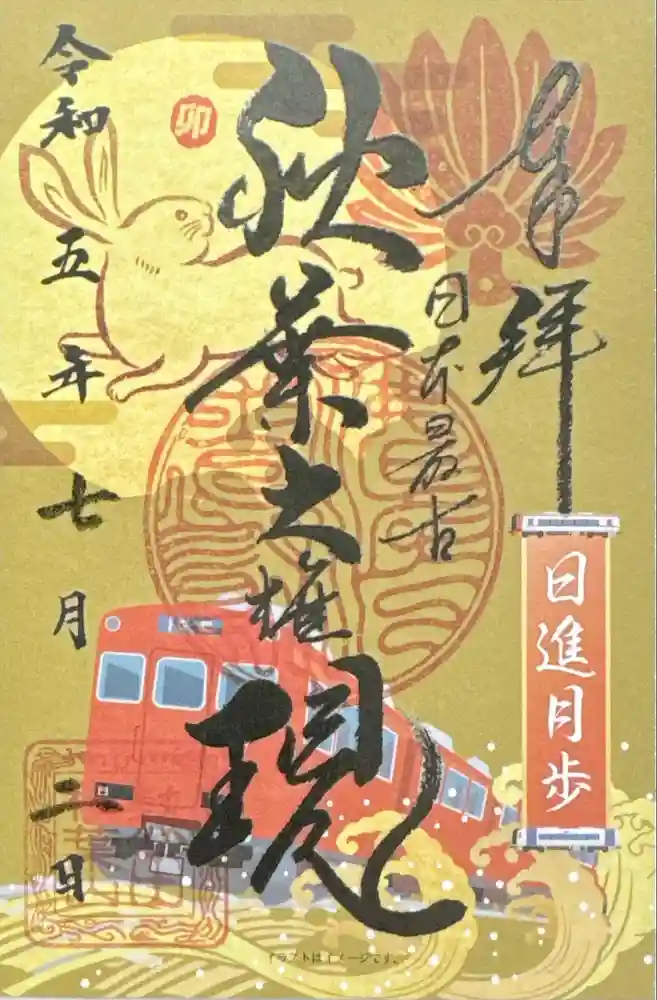 奉拝
日進月歩
日本最古
秋葉大権現
卯
令和五年七月三日
イラストはイメージです。